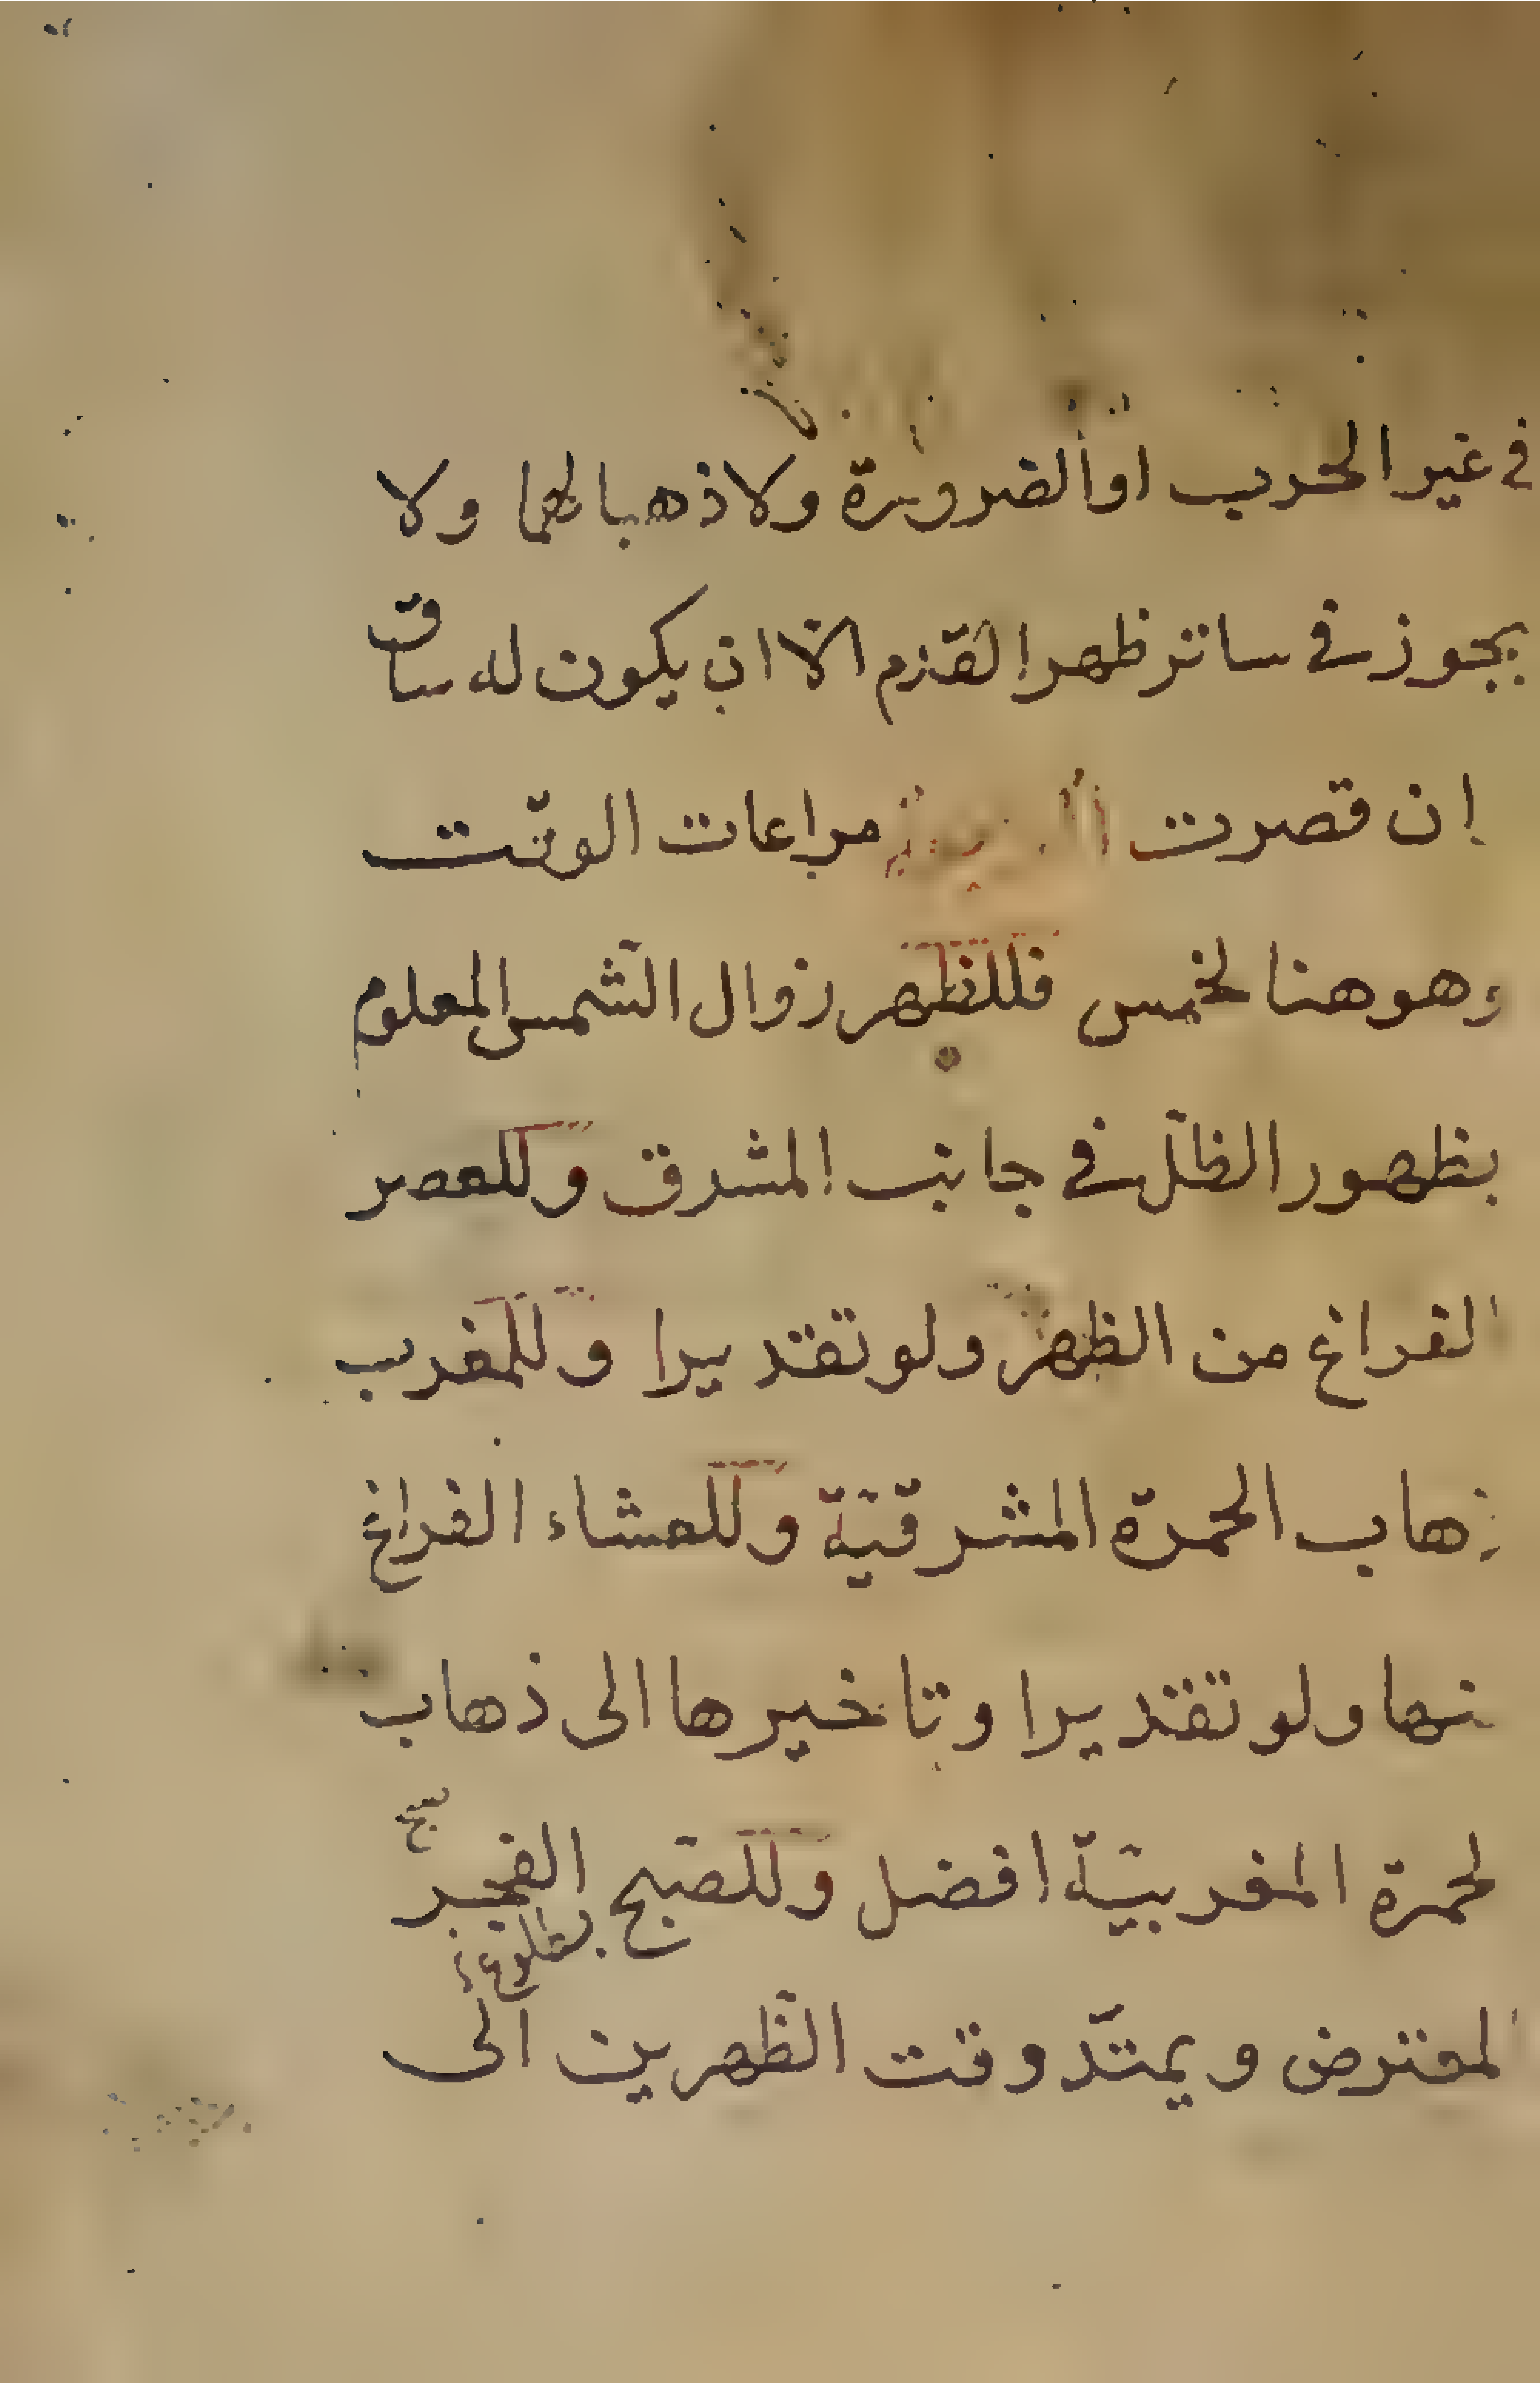 في غير الحرب او الضرورة ولا ذهبا لهما ولا
يجوز في ساتر ظهر القدم الا ان يكون له ساق
ان قصرت مراعات الوقت
وهو هنا لخمس فللظهر زوال الشمس المعلوم
بظهور الظلّ في جانب المشرق وللعصر
الفراغ من الظهر ولو تقديرا وللمغرب
ذهاب الحمرة المشرقيّة وللعشاء الفراغ
منها ولو تقديرا وتاخيرها الى ذهاب
لحمرة المغربيّة افضل وللصّبح الفجر
بطلوع
المفترض ويمتدّ وقت الظّهرين الى